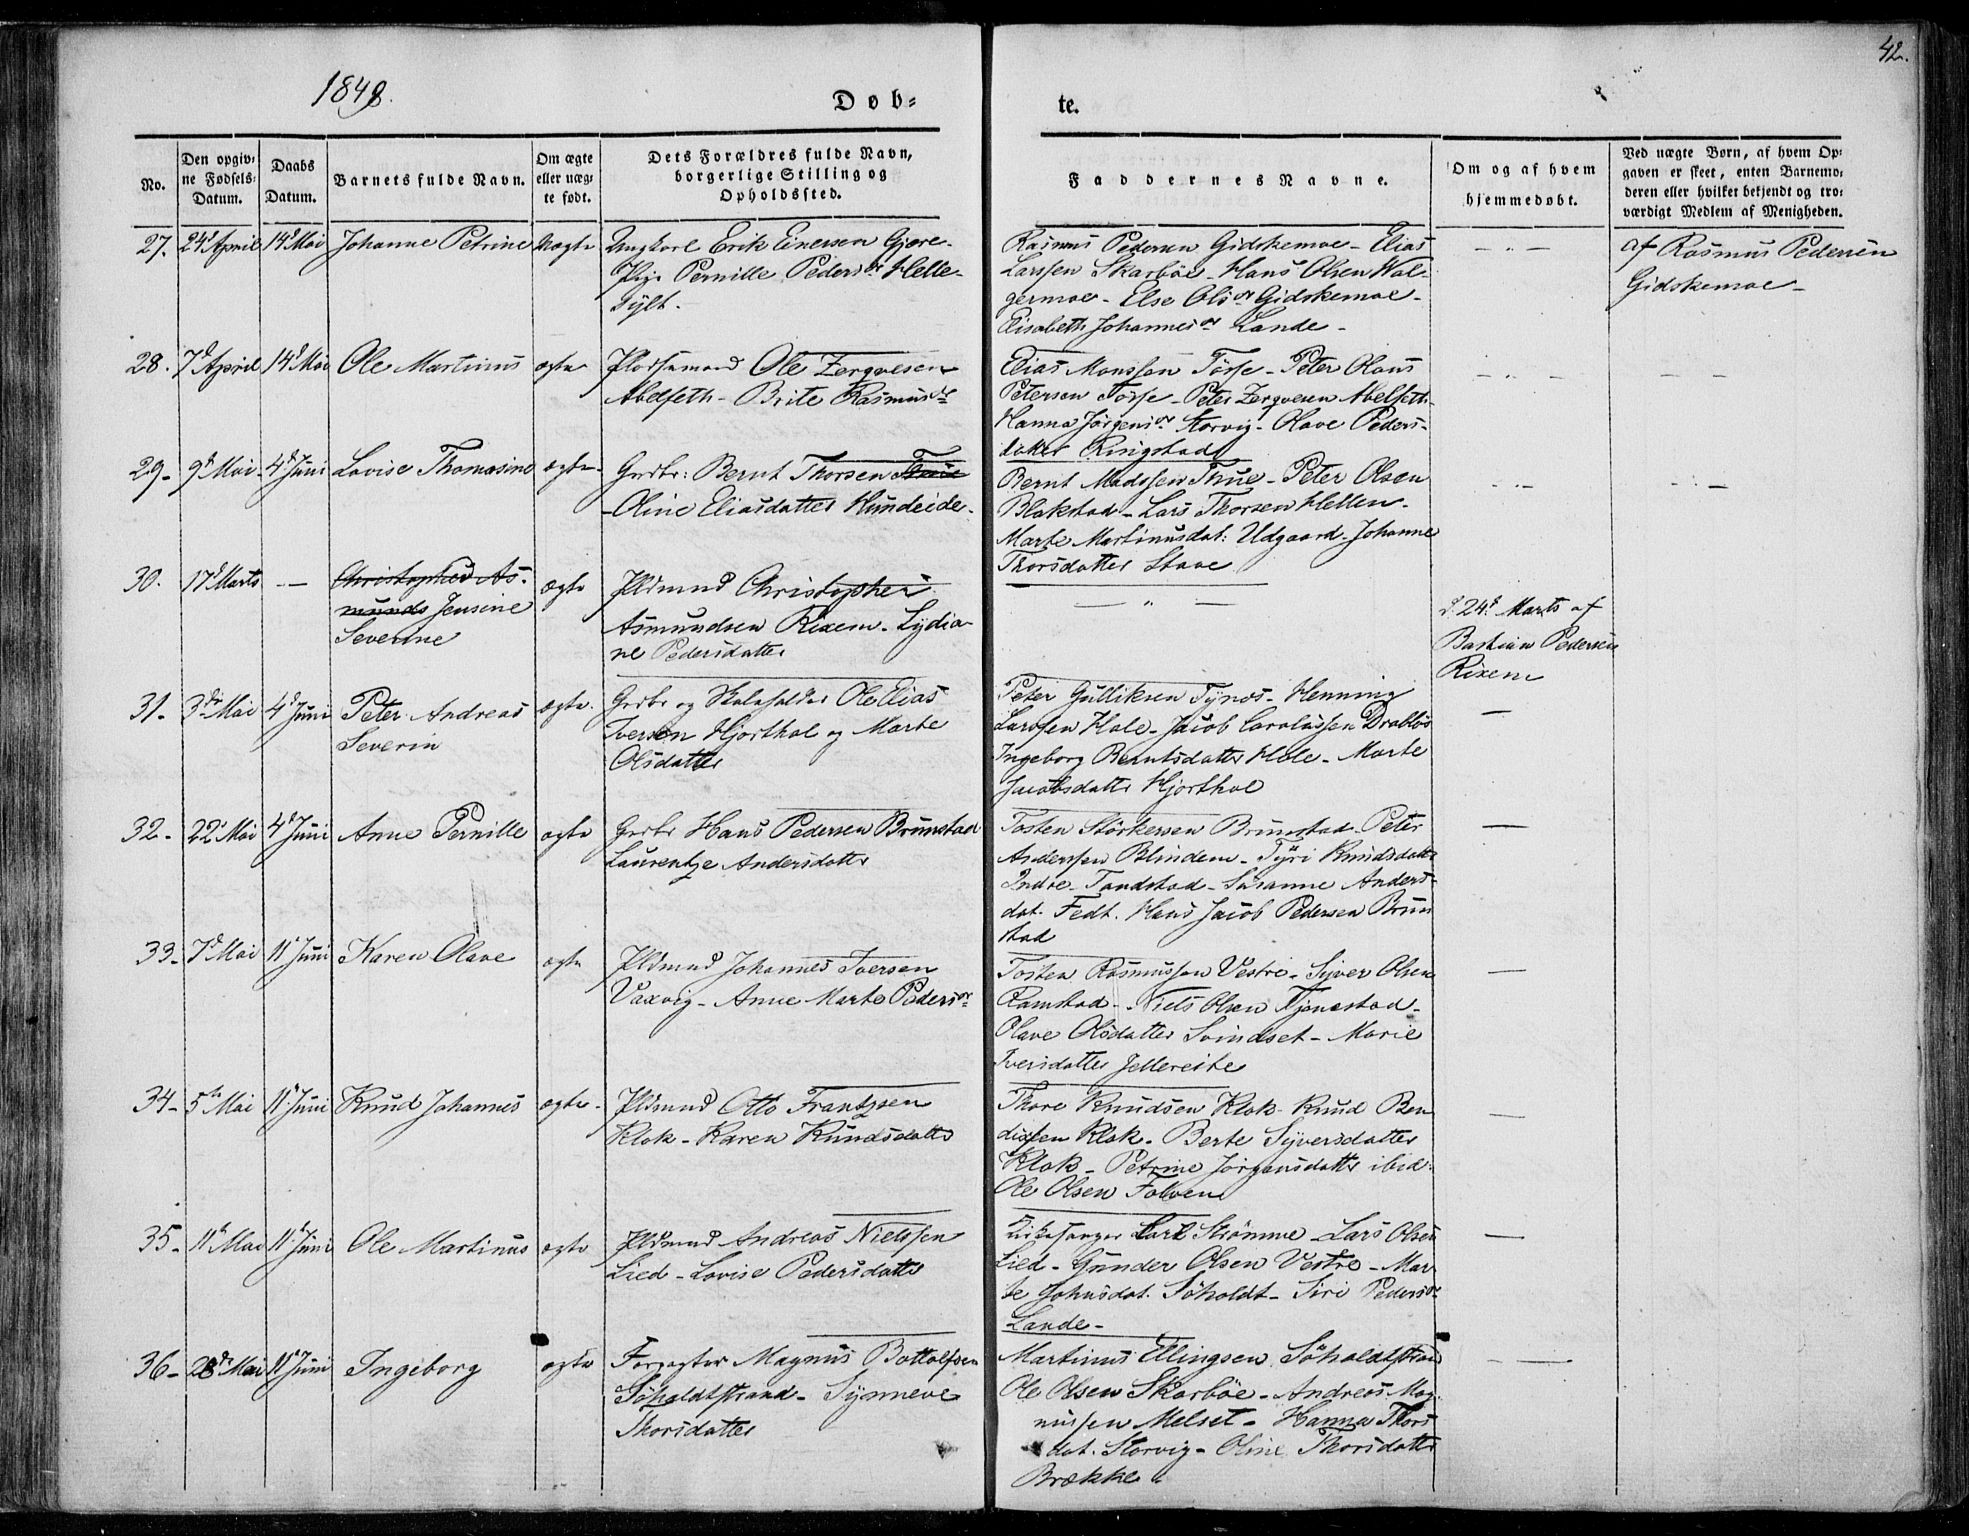 42.
1848.
Døb-
te.
No.
Den opgiv-
ne Fødsels-
Datum.
Daabs
Datum.
Barnets fulde Navn.
Om ægte
eller uæg-
te født.
Dets Forældres fulde Navn,
borgerlige Stilling og
Opholdssted.
Faddernes Navne.
Om og af hvem
hjemmedøbt.
Ved uægte Børn, af hvem Op-
gaven er skeet, enten Barnemo-
deren eller hvilket bekjendt og tro-
værdigt Medlem af Menigheden.
27. 24d April 14d Mai Johanne Petrine uægte
Ungkarl Erik Einersen Gjære-
Pige Pernille Pedersdr Helle-
sylt.
Rasmus Pedersen Gidskemoe - Elias
Larssen Skarbøe - Hans Olsen Wal-
germoe - Else Olsdr Gidskemoe -
Elisabeth Johannesdr Lande -
af Rasmus Pedersen
Gidskemoe -
28. 7d April 14d Mai Ole Martinus ægte
Pladsemand Ole Zergvesen
Abelseth - Brite Rasmusdr
Elias Monssen Tørse - Peter Olaus
Petersen Tørse - Peter Zergvesen Abelseth
Hanna Jørgensdr Storvig - Olave Peders-
datter Ringstad
29 - 9d Mai - 4d Juni Lovise Thomasine ægte -
Grdbr: Bernt Thorsen Thue
Oline Eliasdatter Hundeide -
Bernt Madssen Thue - Peter Olsen
Blakstad - Lars Thorsen Hellen -
Marte Martinusdat: Udgaard - Johanne
Thorsdatter Stave
30. 17d Marts - - Christopher As-
munds Jensine
Severine
ægte
Pldmnd Christopher
Asmundsen Rixem - Lydia-
ne Pedersdatter
d. 24d Marts af
Bastian Pedersen
Rixem
31 - 3die Mai 4d Juni Peter Andreas
Severin
ægte.
Grdbr og Skoleholder Ole Elias
Iversen Hjorthol og Marte
Olsdatter
Peter Gulliksen Tynes - Henning
Larssen Hole - Jacob Carolussen Drabløs
Ingeborg Berntsdatter Hole - Marte
Jacobsdatter Hjorthol
32 - 22d Mai 4d Juni Anne Pernille ægte
Grdbr Hans Pedersen Brunstad
Laurentze Andersdatter
Tosten Størkersen Brunstad - Peter
Anderssen Blindem - Tyri Knudsdatter
Indre - Tandstad - Susanne Anders-
dat. Fedt. Hans Jacob Pedersen Brun
stad
33 - 7d Mai 11d Juni Karen Olave ægte
Pldmnd Johannes Iversen
Vaxvig - Anne Marte Pedersdr
Tosten Rasmussen Vestre - Syver Olsen
Ramstad - Niels Olsen Tjenestad -
Olave Olsdatter Svindset - Marie
Iversdatter Jellereite
34 - 5te Mai 11d Juni Knud Johannes ægte -
Pldmnd Otto Frantzsen
Klok - Karen Knudsdatter
Thore Knudsen Klok - Knud Ben
dixsen Klok - Berte Syversdatter
Klok - Petrine Jørgensdatter ibid:
Ole Olsen Folven
35 - 11te Mai 11d Juni Ole Martinus ægte
Pldmnd Andreas Nielssen
Lied - Lovise Pedersdatter
Kirkesanger Carl Strømme - Lars Olsen
Lied - Gunder Olsen Vestre - Mar-
te Johnsdat. Søholdt - Siri Pedersdr
Lande -
36 - 28de Mai 11d Juni Ingeborg ægte
Forpagter Magnus Bottolfsen
Søholdtstrand - Synneve
Thorsdatter
Martinus Ellingsen Søholdtstrand
Ole Olsen Skarbøe - Andreas Mag-
nussen Melset - Hanna Thors
dat. Storvig - Oline Thorsdatter
Brække